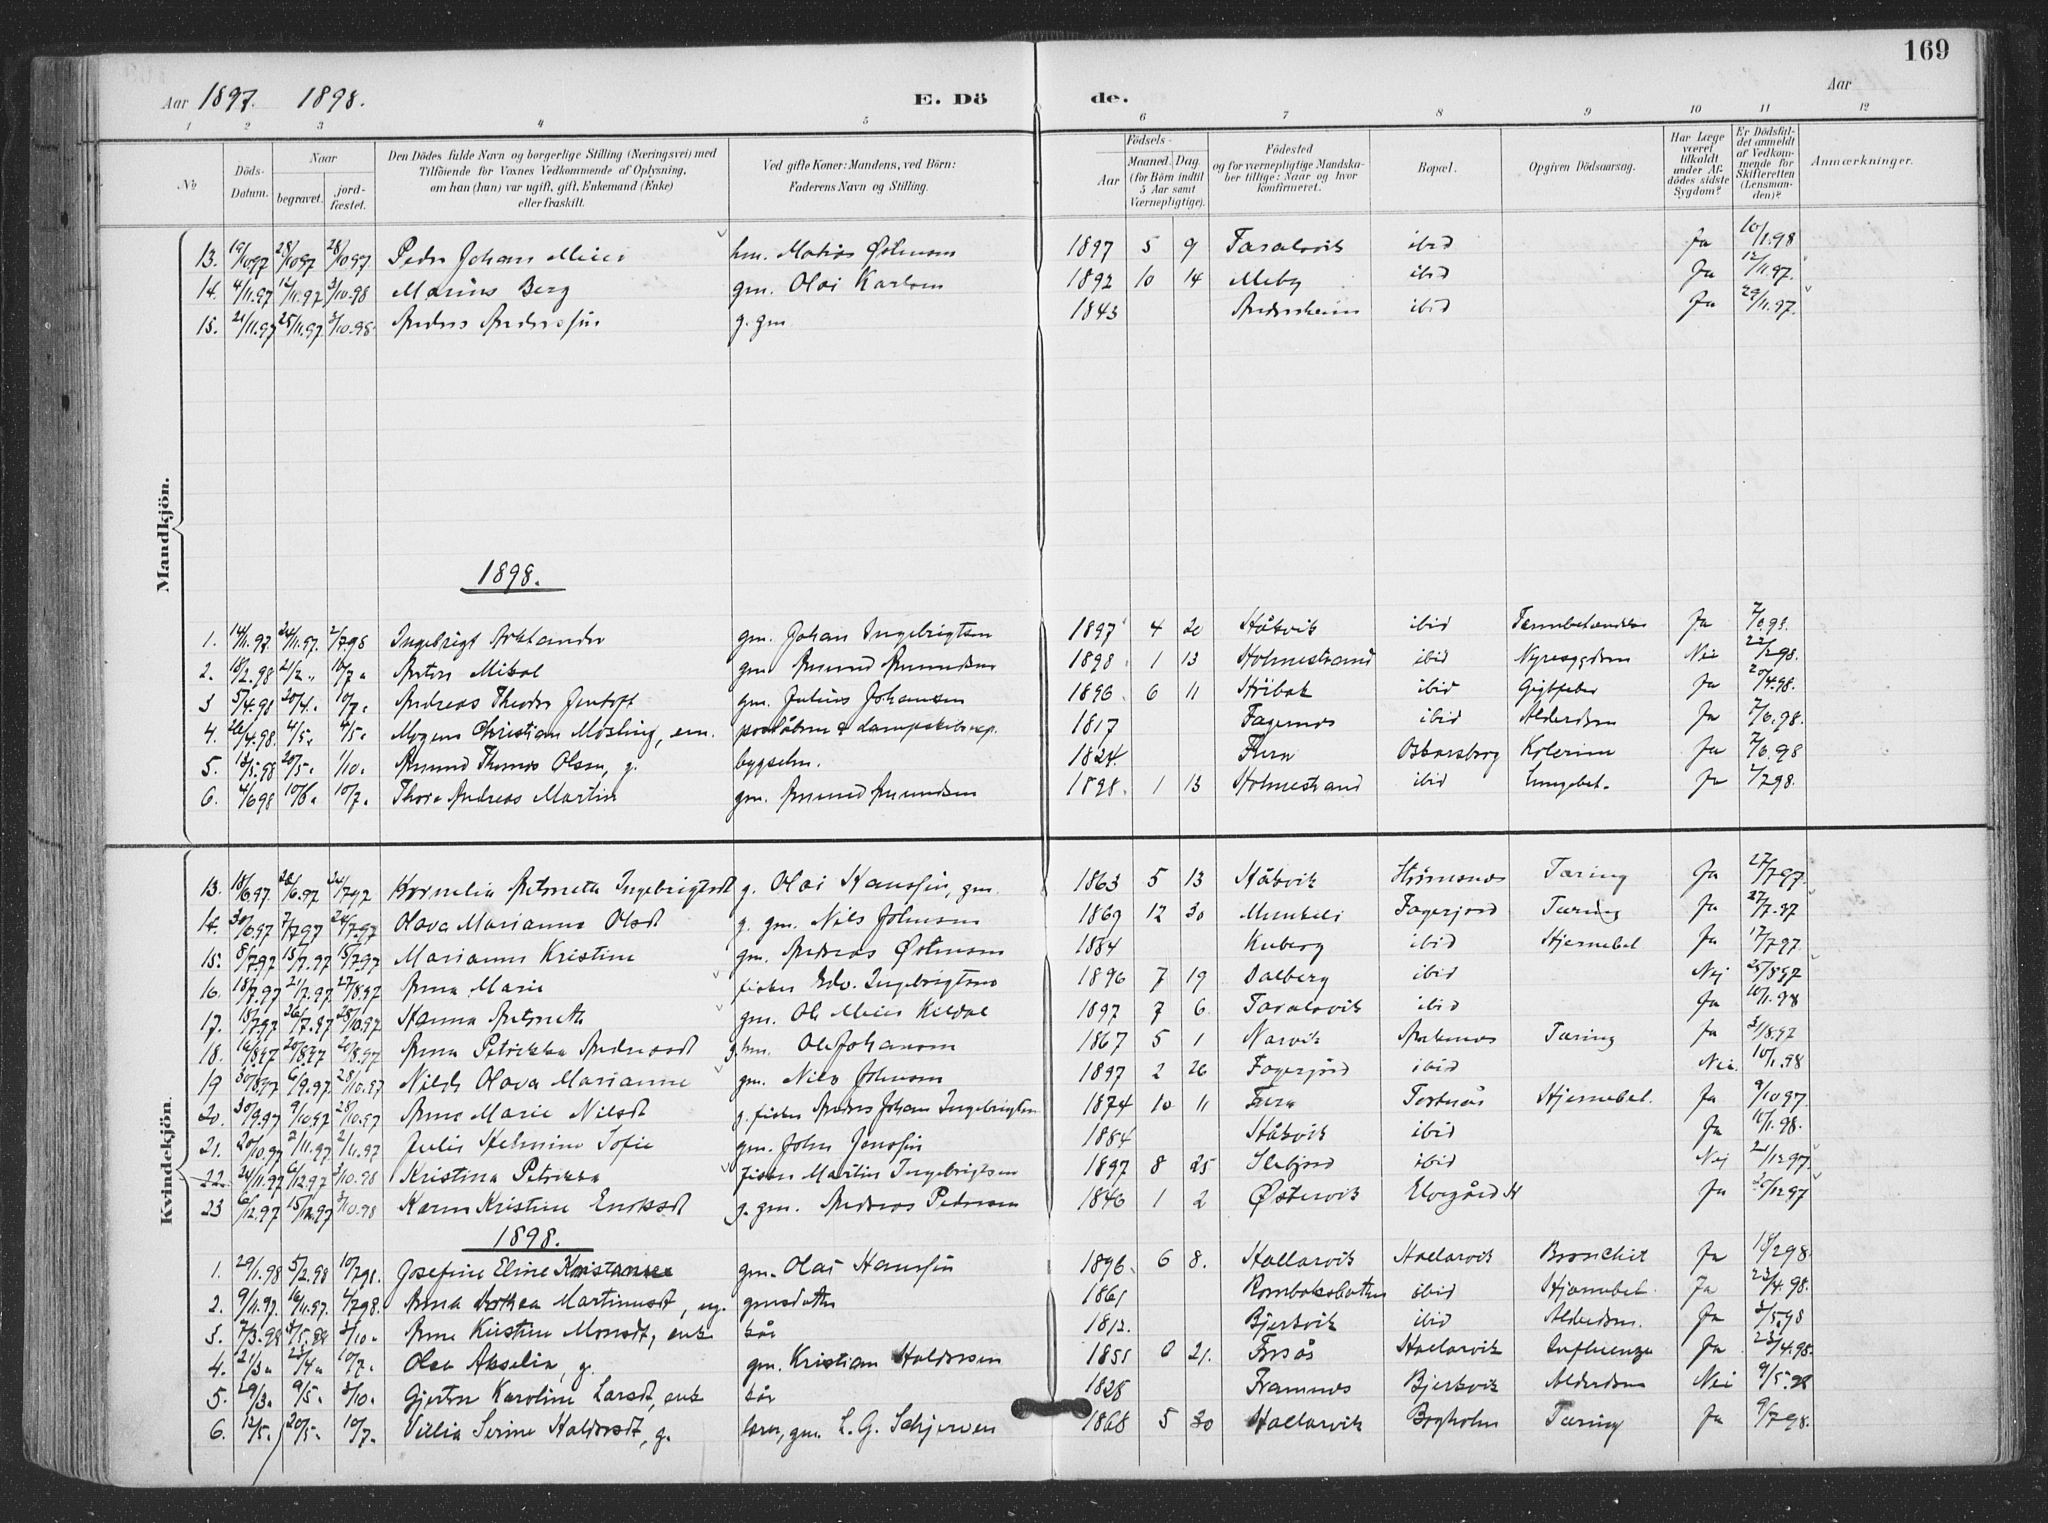 169
Aar 1897. 1898. E. Dö de. Aar
1 2 3 4 5 6 7 8 9 10 11 12
No
Döds-Datum.
Naar begravet. jord-fæstet.
Den Dödes fulde Navn og borgerlige Stilling (Næringsvei) med Tilföiende for Voxnes Vedkommende af Oplysning, om han (hun) var ugift, gift, Enkemand (Enke) eller fraskilt.
Ved gifte Koner: Mandens, ved Börn: Faderens Navn og Stilling.
Födsels- Aar Maaned. Dag. (for Börn indtil 5 Aar samt Værnepligtige).
Födested og for værnepligtige Mandskaber tillige: Naar og hvor konfirmeret.
Bopæl.
Opgiven Dödsaarsag.
Har Læge været tilkaldt under Afdödes sidste Sygdom?
Er Dödsfaldet anmeldt af Vedkommende for Skifteretten (Lensmanden)?
Anmærkninger.
Mandkjön.
13. 19/10 97 28/10 97 28/10 97 Peder Johan Meier hm. Matias Østensen 1897 5 9 Taraldsvik ibid Ja 10/1.98
14. 4/11.97 12/11.97 3/10.98 Marius Berg gm. Olai Karlsen 1892 10 14 Meby ibid Ja 12/11.97.
15. 21/11.97 25/11.97 3/10.98. Anders Anderssen g. gm 1843 ibid Ja 29/11.97.
1898.
1. 14/11.97. 24/11.97. 2/7 98 Ingebrigt gm. Johan Ingebrigtsen 1897 4 20 Håkvik ibid Ja 7/6.98.
2. 18/2.98 21/2 „ 10/7 „ Anton Mikal gm Amund Amundsen 1898. 1 13 Holmestrand ibid Nyresygdom Nei 22/2 98.
3 5/4.98 20/4. 10/7. Andreas Theodor Jentoft gm. Julius Johansen 1896. 6 11 ibid Gigtfeber Ja 20/4.98.
4. 26/4.98. 4/5. 4/5. Mogens Christian Mosling, em. poståbner & dampskibsexp. 1817 Fagernes ibid Alderdom Ja 7/6.98.
5. 13/5.98 20/5. 1/10. Amund Thomas Olsen, g. bygselm. 1824. Furu Kolerine Ja 7/6 98
6. 4/6 98 10/6. 10/7. Thor Andreas Martin gm. Amund Amundsen 1898. 1 13 Holmestrand ibid Lungebet. Ja 2/7 98.
Kvindekjön.
13. 18/6.97. 26/6.97 24/7 97 Kornelia Petrnetta Ingebrigtsdt g. Olai Hanssen, gm. 1863 5 13 Håkvik Strømsnes Tæring Ja 27/7 97.
14. 30/6.97 7/7 97 24/7.97 Olava Marianne Olsdt g. gm. Nils Johnsen 1869 12 30 Fagerjord Tæring Ja 27/7.97
15. 8/7.97 15/7.97 15/7.97 Marianne Kristine gm. Andreas Østensen 1884 Kuberg ibid Hjernebet Ja 17/7 97.
16. 18/7.97 21/7.97 27/8.97 Anna Marie fisker Edv. Ingebrigtsen 1896 7 19 Dalberg ibid Nej 25/8 97
17. 18/7 97 26/7.97 28/10.97 Hanna gm. Ole Meier Kildal 1897 7 6 Taraldsvik ibid Ja 10/1.98
18. 16/8.97 20/8.97 20/8.97 Anna Petrikka Andreasdt g. hm. Ole Johansen 1867 5 1 Narvik Ankenes Tæring Ja 31/8.97
19 30/8.97 6/9.97. 28/10.97 Nilsds Olava Marianne gm. Nils Johnsen 1897 2 26 Fagerjord ibid Nei. 10/1.98
20. 30/9.97 9/10.97 28/10.97 Anne Marie Nilsdt g. fisker Anders Johan Ingebrigtsen 1874 10 11 Furu Tortnås Hjernebet. Ja 9/10 97.
21. 20/10.97 2/11.97 2/11.97 Julie Helmine Sofie gm. John Jenssen 1884 Håkvik ibid Ja 10/1.98.
22. 24/11.97 6/12.97 3/10.98 Kristina Petrikka fisker Martin Ingebrigtsen 1897 8 25 ibid Nej 21/12 97.
23 6/12.97 15/12.97 3/10.98 Karen Kristine Eriksdt g. gm. Andreas Pedersen 1846 1 2 Østervik Elvegård H Ja 12 97
1898.
1. 29/1.98 5/2.98 10/7 98. Josefine Eline Konstanse gm. Olai Hanssen 1896. 6 8. Hallarvik Hallarvik Bronchit Ja 18/2 98.
2. 9/11.97. 16/11.97. 4/7 98. Anna Dorthea Martinusdt, ug. gmsdatter 1861 Rombaksbotten ibid Hjernebet. Ja 23/4.98.
3. 7/3.98 3/5.98 3/10. Ane Kristine Monsdt, enke kår 1812. Bjerkvik ibid Alderdom. Ja 3/5.98
4. 21/3. 23/4. 10/7. Olea Akselia, g. gm. Kristian Haldorsen 1851 0 21. Forsås Hallarvik Influenza Ja 23/4.98.
5. 29/3. 9/5. 3/10. Gjertru Karoline Larsdt, enke kår 1828 Framnes Bjerkvik Alderdom Nei 9/5.98
6. 12/5. 20/5. 10/7. Villa Serine Haldorsdt, g. lærer, gm. L. G. Schjerven 1868 5 30 Hallarvik Bogholm Tæring Ja 9/7 98.